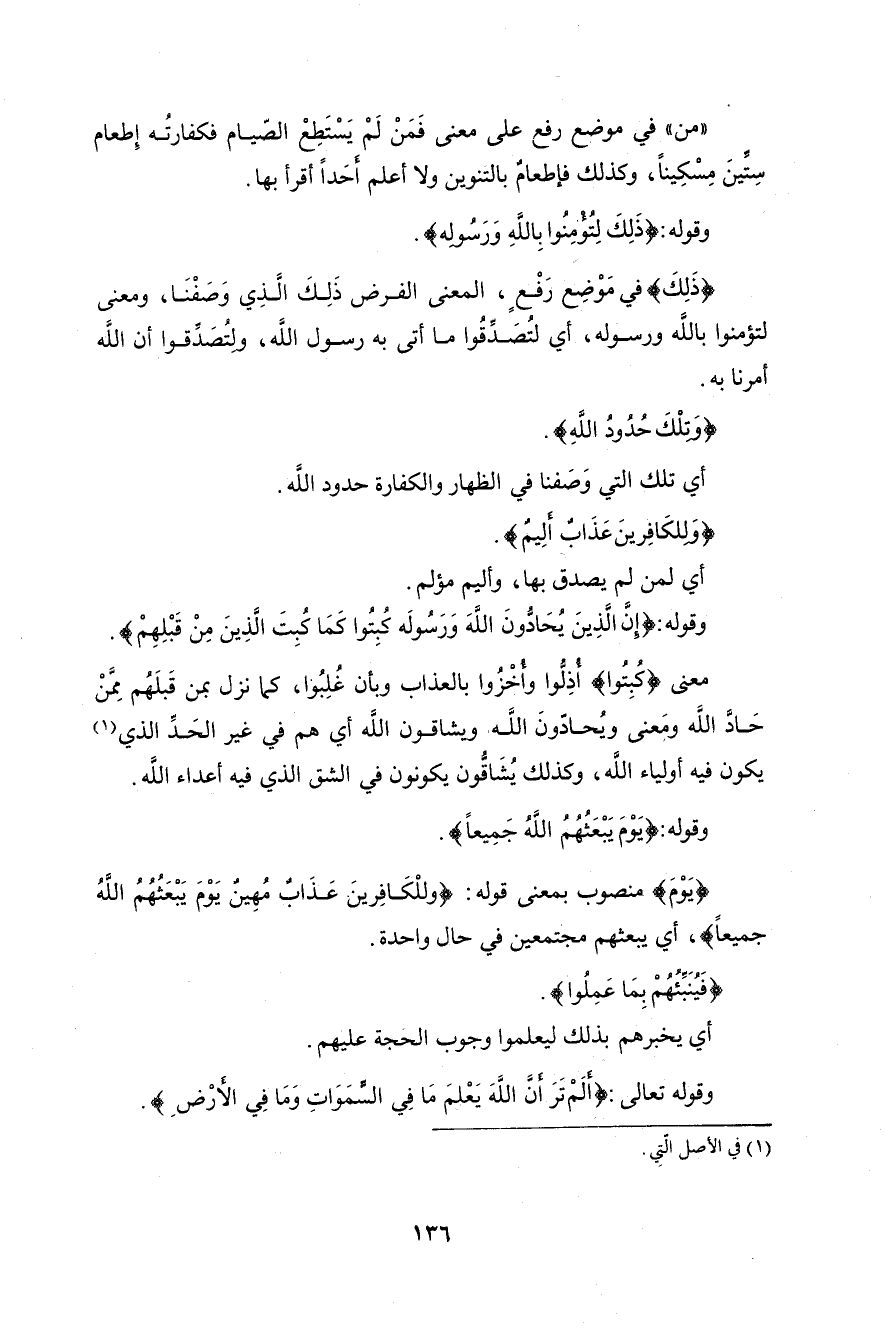 «من» في موضع رفع على معنى فَمَنْ لَمْ يَسْتَطِعْ الصّيام فكفارتُه إطعام
سِتِّينَ مِسْكِيناً، وكذلك فإطعامٌ بالتنوين ولا أعلم أَحَداً أقرأ بها.
وقوله: ﴿ذَلِكَ لِتُؤْمِنُوا بِاللَّهِ وَرَسُولِه﴾.
﴿ذَلِكَ﴾ في مَوْضِع رَفْعٍ، المعنى الفرض ذَلِكَ الَّذِي وَصَفْنَا، ومعنى
لتؤمنوا باللَّه ورسوله، أي لتُصَدِّقُوا ما أتى به رسول اللَّه، ولِتُصَدِّقوا أن اللَّه
أمرنا به.
﴿وَتِلْكَ حُدُودُ اللَّهِ﴾.
أي تلك التي وَصَفنا في الظهار والكفارة حدود اللَّه.
﴿وَلِلكَافِرِينَ عَذَابٌ أَلِيمٌ﴾.
أي لمن لم يصدق بها، وأليم مؤلم.
وقوله: ﴿إِنَّ الَّذِينَ يُحَادُّونَ اللَّهَ وَرَسُولَه كُبِتُوا كَمَا كُبِتَ الَّذِينَ مِنْ قَبْلِهِمْ﴾.
معنى ﴿كُبِتُوا﴾ أُذِلُّوا وأُخْزُوا بالعذاب وبأن غُلِبُوا، كما نزل بمن قَبلَهُم مِمَّنْ
حَادَّ اللَّه ومَعنى ويُحادّونَ اللَّه ويشاقون اللَّه أي هم في غير الحَدِّ الذي(١)
يكون فيه أولياء اللَّه، وكذلك يُشَاقُّون يكونون في الشق الذي فيه أعداء اللَّه.
وقوله: ﴿يَوْمَ يَبْعَثُهُمُ اللَّهُ جَمِيعاً﴾.
﴿يَوْمَ﴾ منصوب بمعنى قوله: ﴿وللْكَافِرِينَ عَذَابٌ مُهِينٌ يَوْمَ يَبْعَثُهُمُ اللَّهُ
جميعاً﴾، أي يبعثهم مجتمعين في حال واحدة.
﴿فَيُنَبِّئُهُمْ بِمَا عَمِلُوا﴾.
أي يخبرهم بذلك ليعلموا وجوب الحجة عليهم.
وقوله تعالى: ﴿أَلَمْ تَرَ أَنَّ اللَّهَ يَعْلمَ مَا فِي السَّمَوَاتِ وَمَا فِي الأَرْضِ﴾.
(١) في الأصل الّتِي.
١٣٦